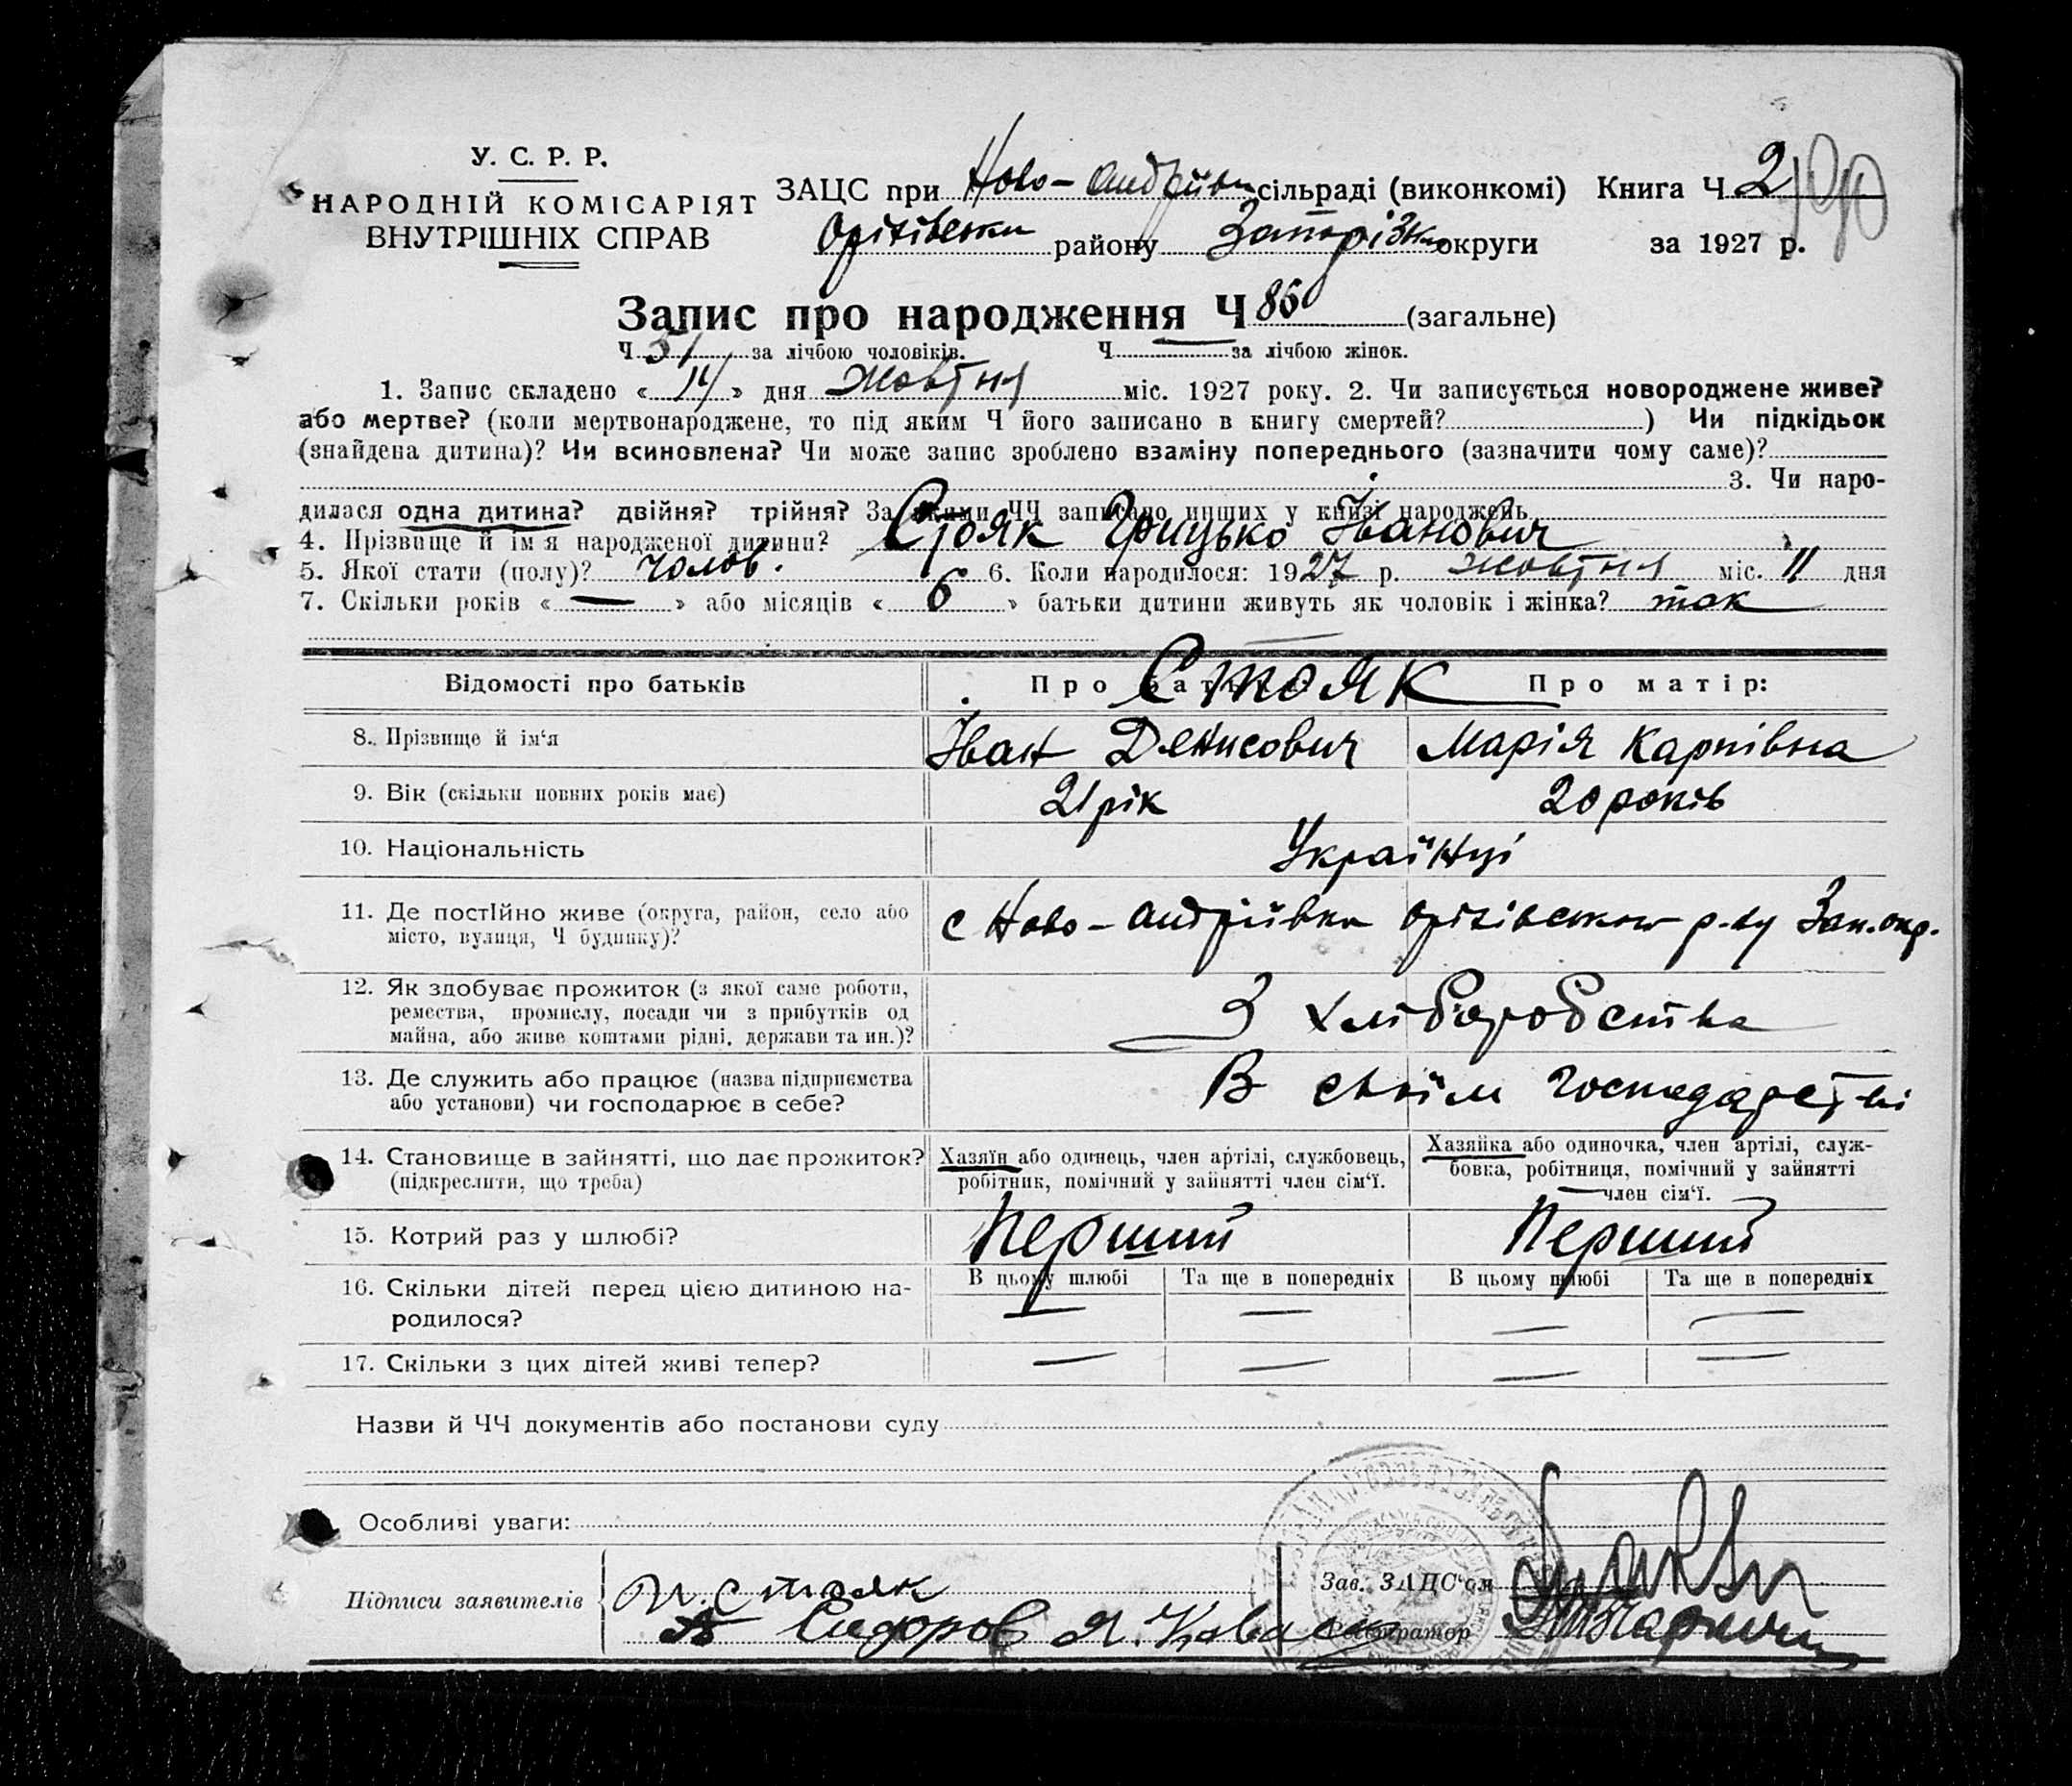 У. С. Р. Р.
НАРОДНІЙ КОМІСАРІЯТ
ВНУТРІШНІХ СПРАВ
ЗАЦС при Ново-Андріївк сільраді (виконкомі) Книга Ч 2
Оріхівськ району Запоріжк округи за 1927 р.
190
Запис про народження Ч 86 (загальне)
Ч 51 за лічбою чоловіків. Ч за лічбою жінок.
1. Запис складено « 14 » дня Жовтня міс. 1927 року. 2. Чи записується новороджене живе?
або мертве? (коли мертвонароджене, то під яким Ч його записано в книгу смертей? ) Чи підкідьок
(знайдена дитина)? Чи всиновлена? Чи може запис зроблено взаміну попереднього (зазначити чому саме)?
3. Чи наро-
дилася одна дитина? двійня? трійня? За якими ЧЧ записано инших у книзі народжень
4. Прізвище й ім'я народженої дитини? Стояк Грицько Іванович
5. Якої стати (полу)? чолов. 6. Коли народилося: 1927 р. жовтня міс. 11 дня
7. Скільки років « — » або місяців « 6 » батьки дитини живуть як чоловік і жінка? так
Відомості про батьків Про батька Стояк Про матір:
8. Прізвище й ім'я Іван Денисович Марія Карпівна
9. Вік (скільки повних років має) 21 рік 20 років
10. Національність Українці
11. Де постійно живе (округа, район, село або
місто, вулиця, Ч будинку)? с Ново-Андріївка Оріхівського р-ну Зап. окр.
12. Як здобуває прожиток (з якої саме роботи,
ремества, промислу, посади чи з прибутків од
майна, або живе коштами рідні, держави та ин.)? З хліборобства
13. Де служить або працює (назва підприємства
або установи) чи господарює в себе? В своїм господарстві
14. Становище в зайнятті, що дає прожиток?
(підкреслити, що треба)
Хазяїн або одинець, член артілі, службовець,
робітник, помічний у зайнятті член сім'ї.
Хазяйка або одиночка, член артілі, служ-
бовка, робітниця, помічний у зайнятті
член сім'ї.
15. Котрий раз у шлюбі? Перший Перший
В цьому шлюбі Та ще в попередніх В цьому шлюбі Та ще в попередніх
16. Скільки дітей перед цією дитиною на-
родилося? — — — —
17. Скільки з цих дітей живі тепер? — — — —
Назви й ЧЧ документів або постанови суду
Особливі уваги:
Підписи заявителів
И. Стояк
Сидоров Я. Ковал
Зав. ЗАЦС'ом
Реєстратор